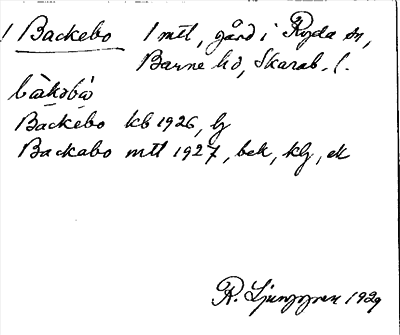 1 Backebo 1 mtl, gård i Ryda sn,
Barne hd, Skarab. l.
bàkəbò
Backebo kb 1926, lj
Backabo mtl 1927, bek, klj, ek
R. Ljunggren 1929